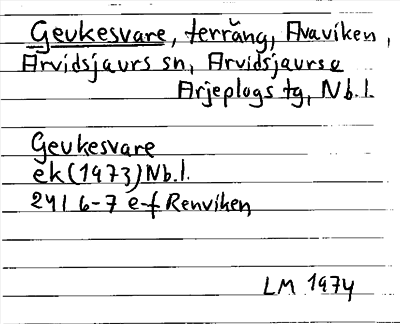 Geukesvare, terräng, Avaviken,
Arvidsjaurs sn, Arvidsjaurs o
Arjeplogs tg, Nb.l.
Geukesvare
ek (1973) Nb.l.
24I 6-7 e-f Renviken
LM 1974